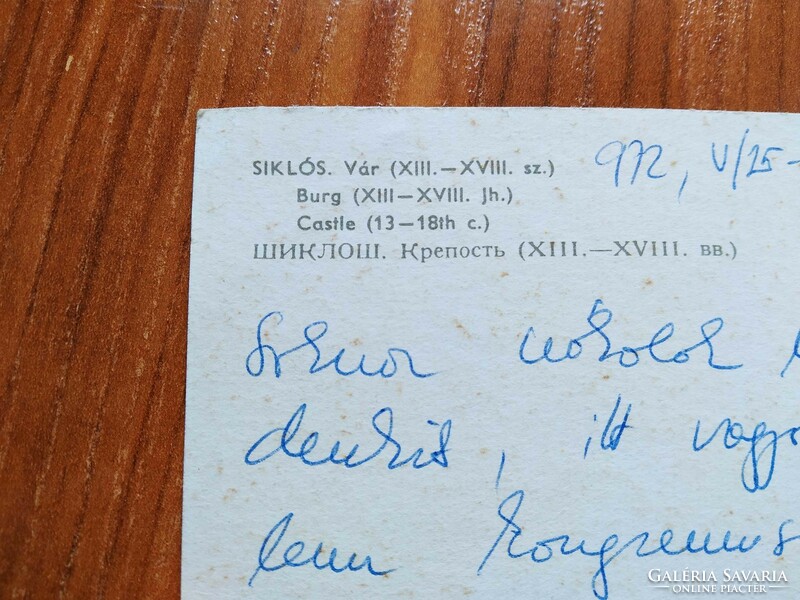 SIKLÓS. Vár (XIII.—XVIII. sz.)
972, V/25-
Burg (XIII—XVIII. Jh.)
Castle (13—18th c.)
ШИКЛОШ. Крепость (XIII.—XVIII. вв.)
csókolok
denkit, itt vagyo
lenn kongressus
GALÉRIA SAVARIA
ONLINE PIACTÉR